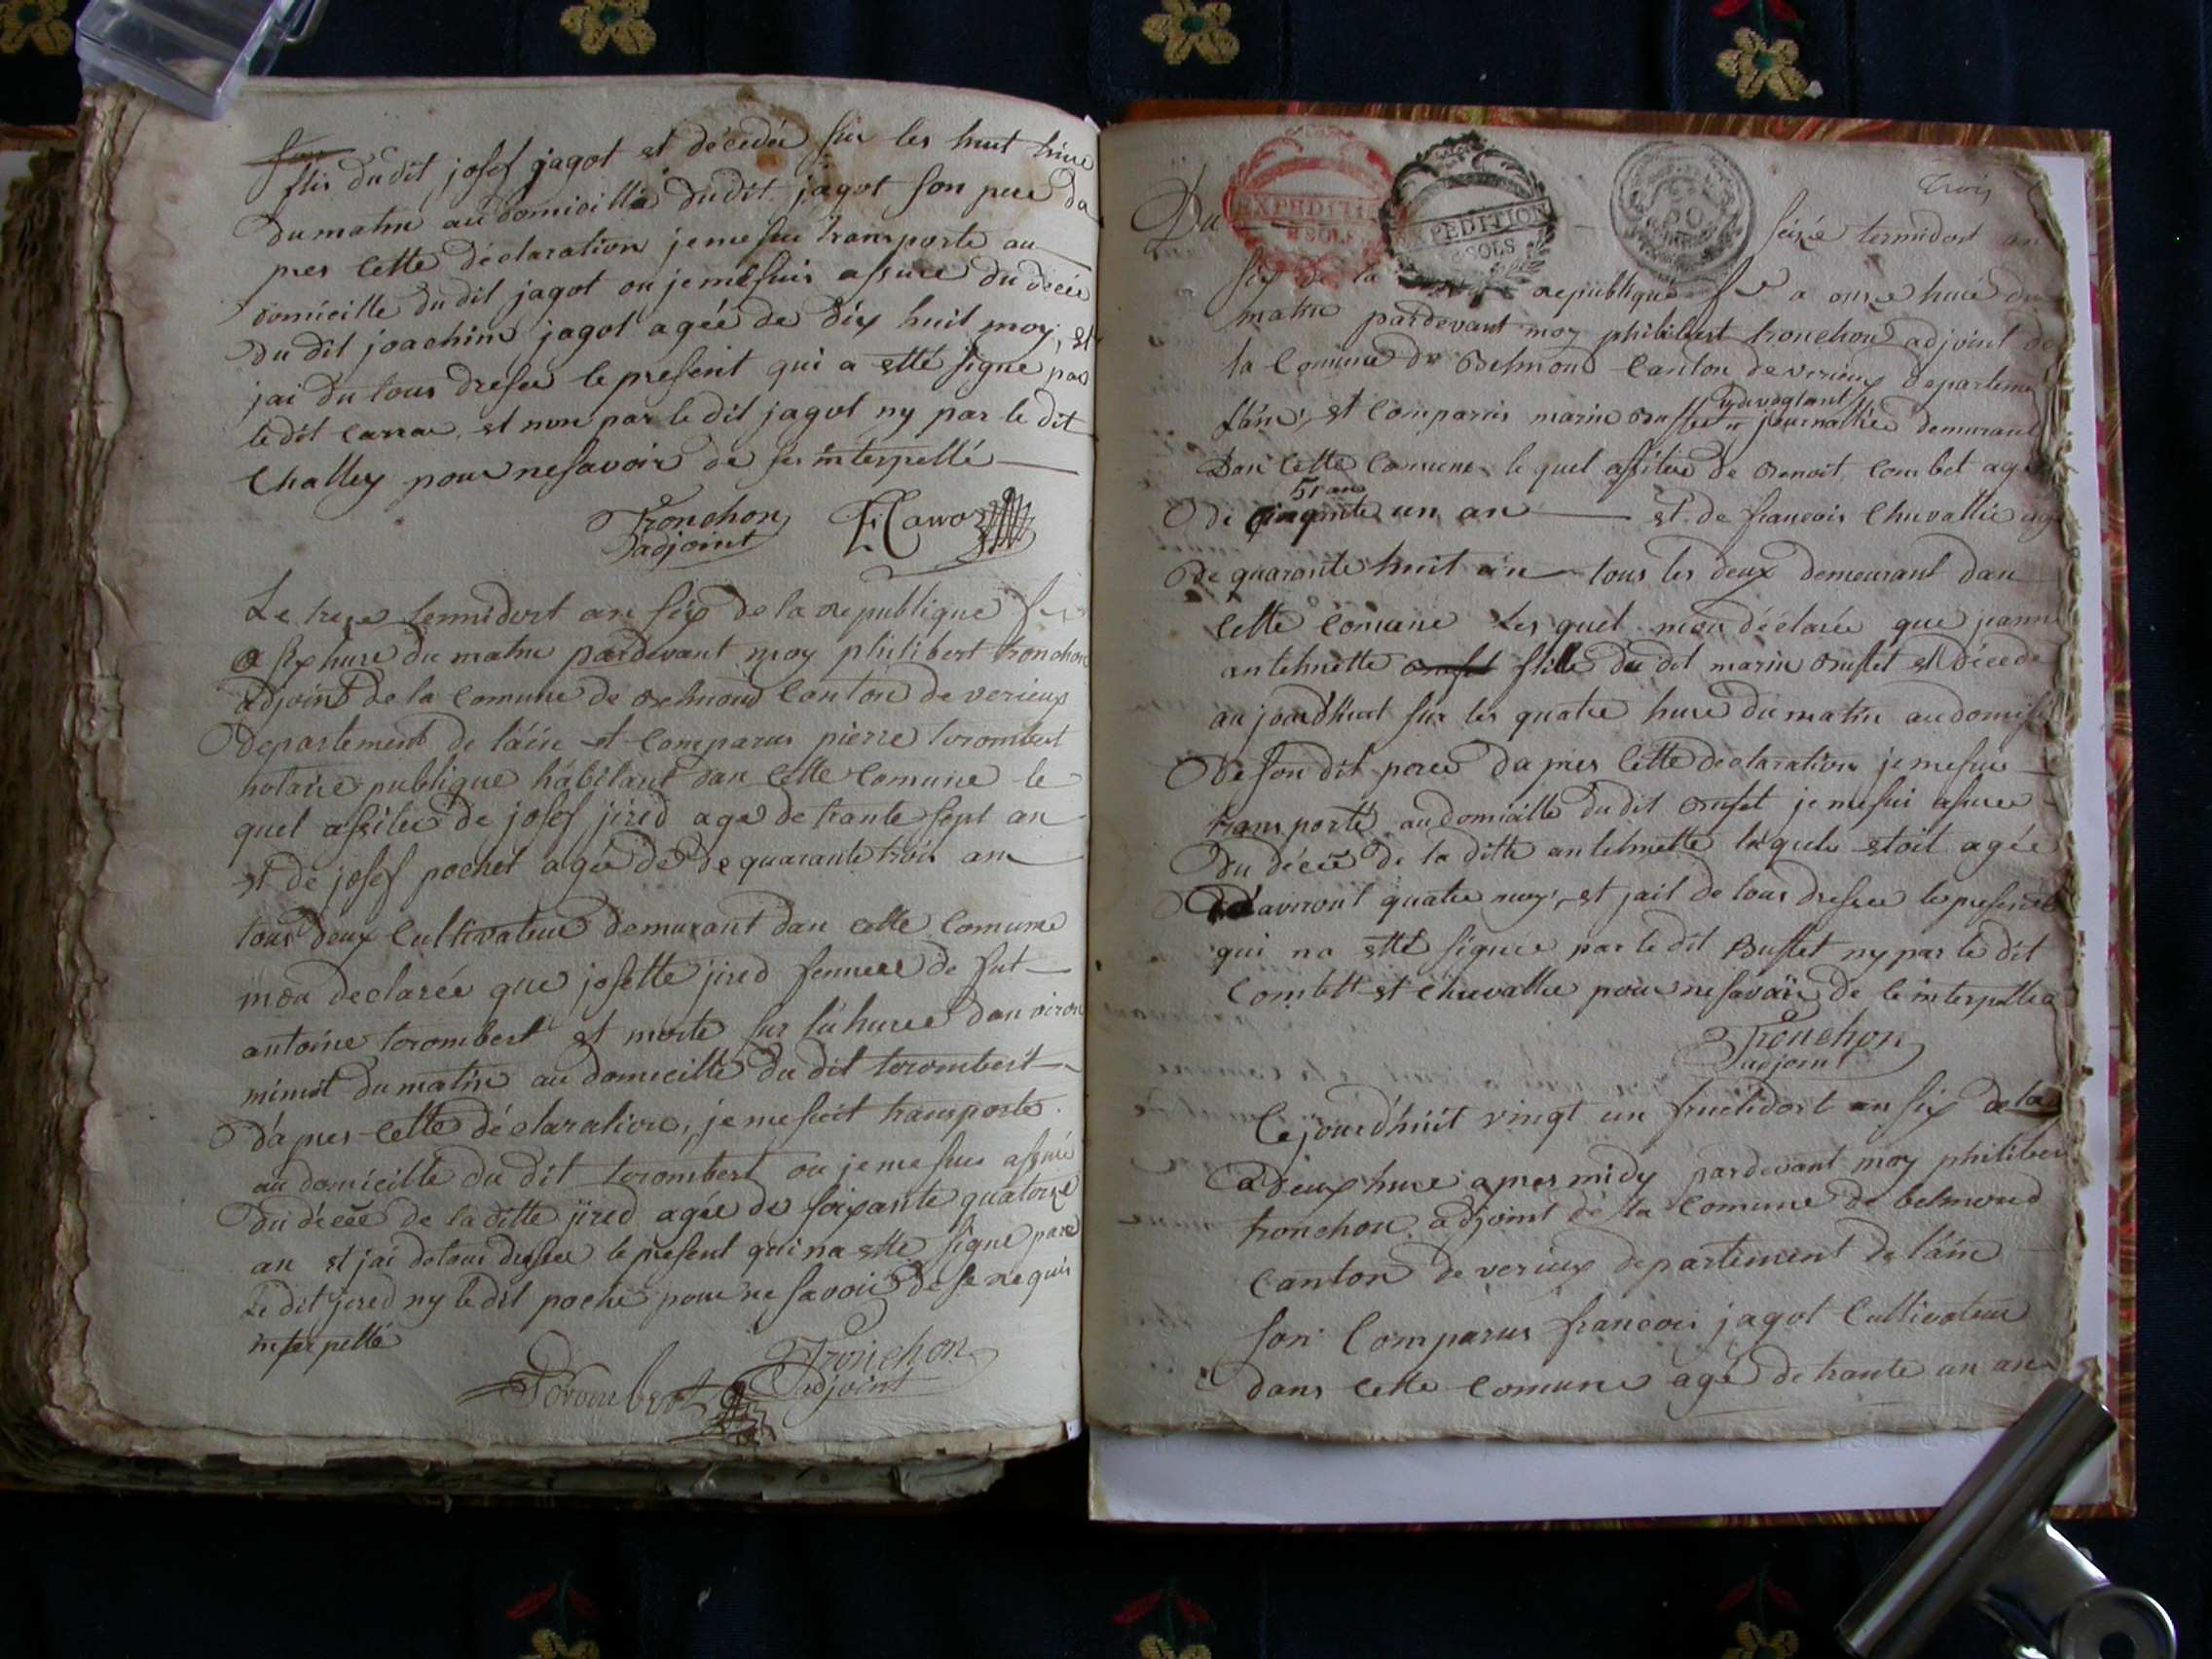 flis du dit josef jagot et décédée sur les huit hure
du matin au domicille dudit jagot son pere da
pres cette déclaration je me sui transporte au
domicille du dit jagot ou je me suis assuce du décée
du dit joachim jagot agée de dix huit moy, et
jai du tous dresee le present qui a etté signe par
le dit carra et non par le dit jagot ny par le dit
challey pour ne savoir de ses interpellé
Tronchon
adjoint
Le treze termidort an six de la republique
a six hure du matin pardevant moy philibert tronchon
adjoint de la comune de belmond canton de verieux
departement de láin et comparus pierre trombert
notaire publique habitant dan cette comune le
quel assitee de josef jired age de trante sept an
et de josef pochet agée de de quarante trois an
tous deux cultivateur demurant dan cette comune
mon declarée que josette jired femme de fut
antoine torombert et morte sur lá huree danviron
minuit du matin au domicille du dit torombert
dápres cette déclaration, je me suit transporte
au domicille du dit torombert ou je me suis assuré
du décée de la ditte jired agée de soixante quatorze
an et jai detous dresee le present qui na ette signe pare
le dit jired ny le dit poche pour ne savoir de se requis
interpellé
Torombert Tronchon
adjoint
trois
Du EXPEDITION SOLS EXPEDITION SOLS seize termidort an
six de la republique a onze huré du
matin pardevant moy philibert tronchon adjoint de
la comune de belmond canton de verieux departeme
láin, et comparus marin buffet journallier demurant
Dan cette comune le quel assitee de benoit combet agé
51 an
de cinqante un an et de francois chuvallie age
de quarante huit an tous les deux demeurant dan
cette comune les quel mon déclarée que janne
antelmette fille du dit marin buffet et décedé
au jourdhuit sur les quatre hure du matin au domisil
de son dit peree dapres cette declaration je me suis
transporté au domicille du dit buffet je me sui asuree
du décée de la ditte antelmette laquele etoit agée
daviront quatre moy, et jait de tous dresee le present
qui na etté signée par le dit Buffet ny par le dit
Combett et chuvallie pour ne savoir de le interpellee
Tronchon
adjoint
Cejourdhuit vingt un fructidort an six de la
a deux hure apres midy pardevant moy philiber
tronchon adjoint de la comune de belmond
canton de verieux departement de láin
son Comparus francois jagot Cultivateur
dans cette comune agé de trante un an